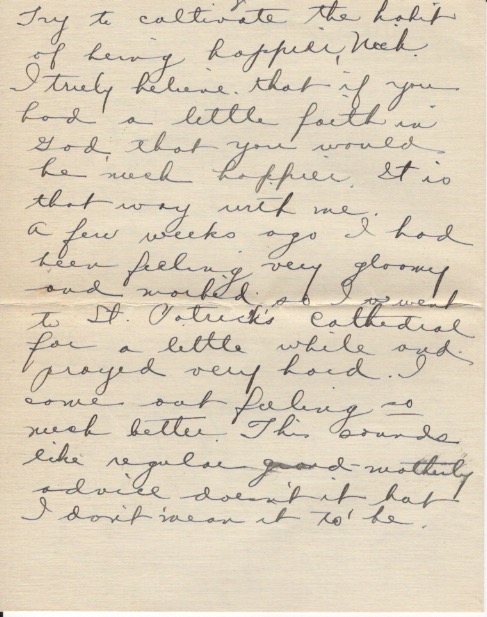 Try to cultivate the habit
of being happier, Neek.
I truly believe that if you
had a little faith in
God, that you would
be much happier. It is
that way with me.
A few weeks ago I had
been feeling very gloomy
and morbid, so I went
to St. Patrick's Cathedral
for a little while and
prayed very hard. I
came out feeling so
much better. This sounds
like regular grand-motherly
advice doesn't it but
I don't mean it to be.